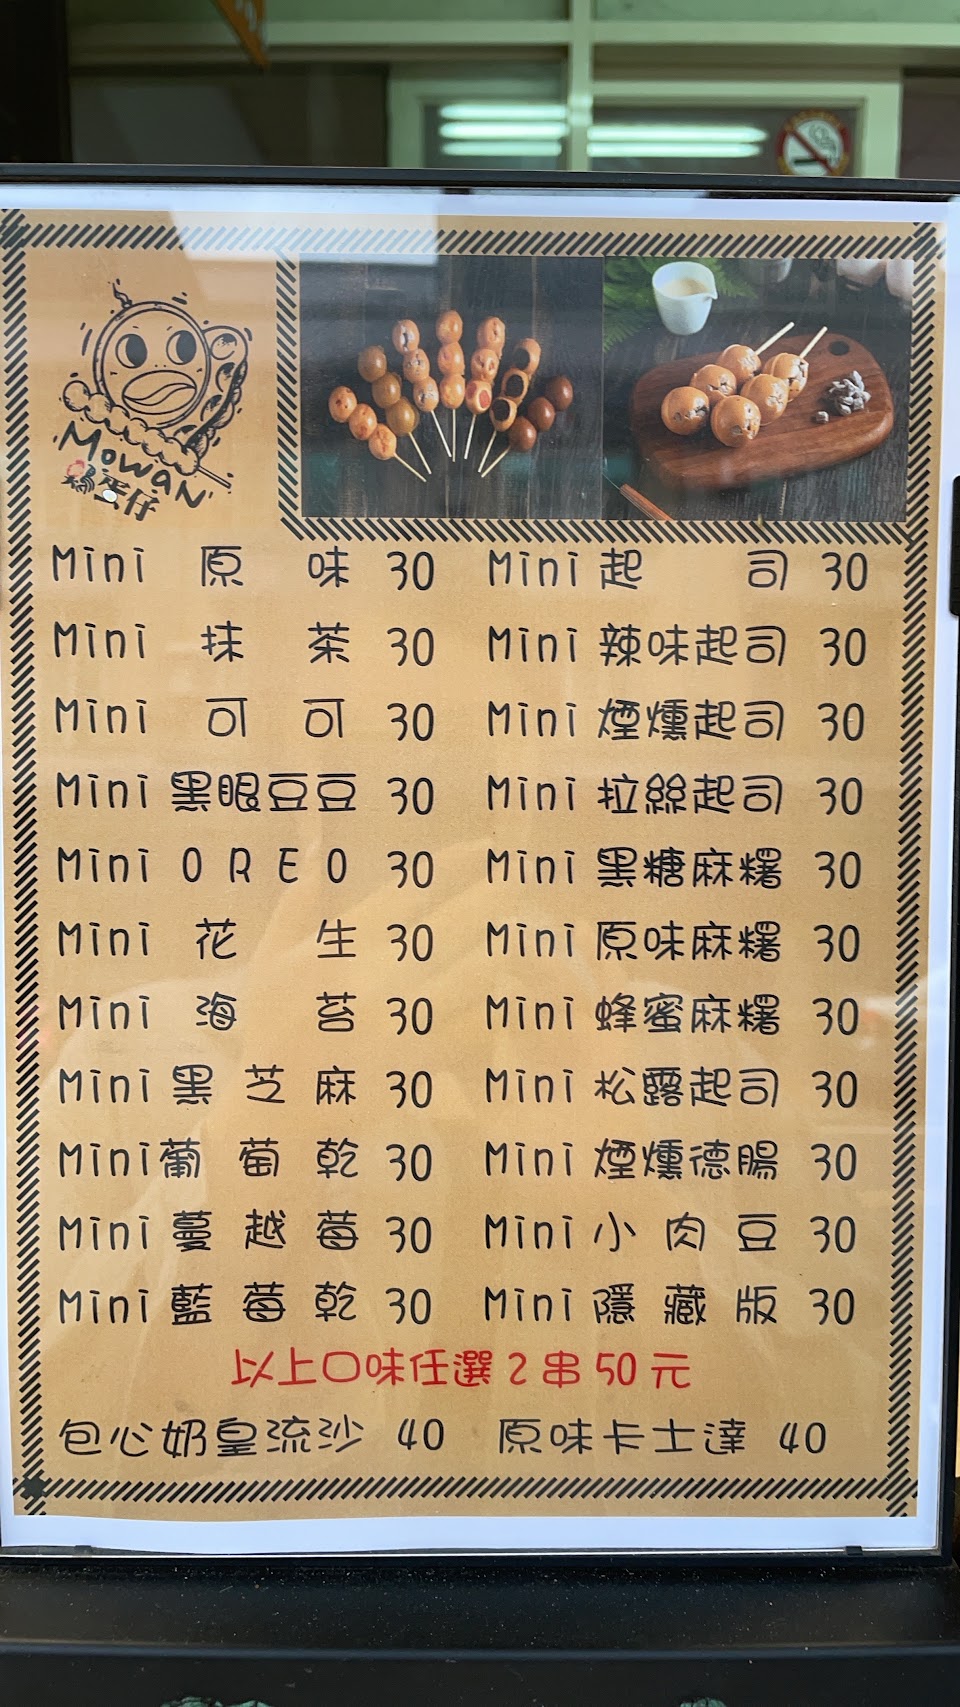 MOWAN
雞蛋仔
Mini 原味 30 Mini 起司 30
Mini 抹茶 30 Mini 辣味起司 30
Mini 可可 30 Mini 煙燻起司 30
Mini 黑眼豆豆 30 Mini 拉絲起司 30
Mini OREO 30 Mini 黑糖麻糬 30
Mini 花生 30 Mini 原味麻糬 30
Mini 海苔 30 Mini 蜂蜜麻糬 30
Mini 黑芝麻 30 Mini 松露起司 30
Mini 葡萄乾 30 Mini 煙燻德腸 30
Mini 蔓越莓 30 Mini 小肉豆 30
Mini 藍莓乾 30 Mini 隱藏版 30
以上口味任選2串50元
包心奶皇流沙 40 原味卡士達 40